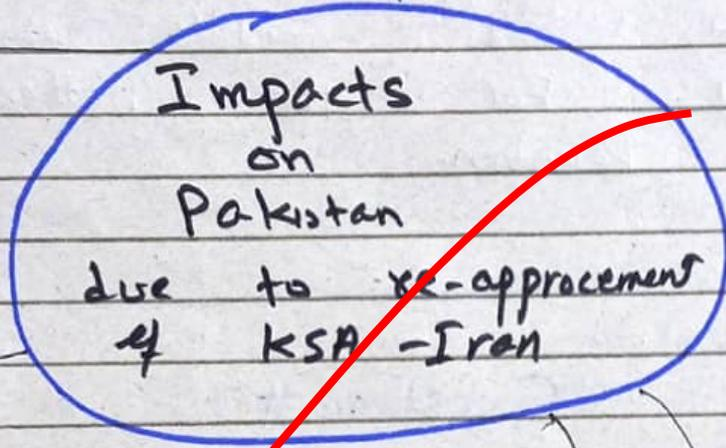 Impacts
on
Pakistan
due to re-approcement
of KSA -Iran